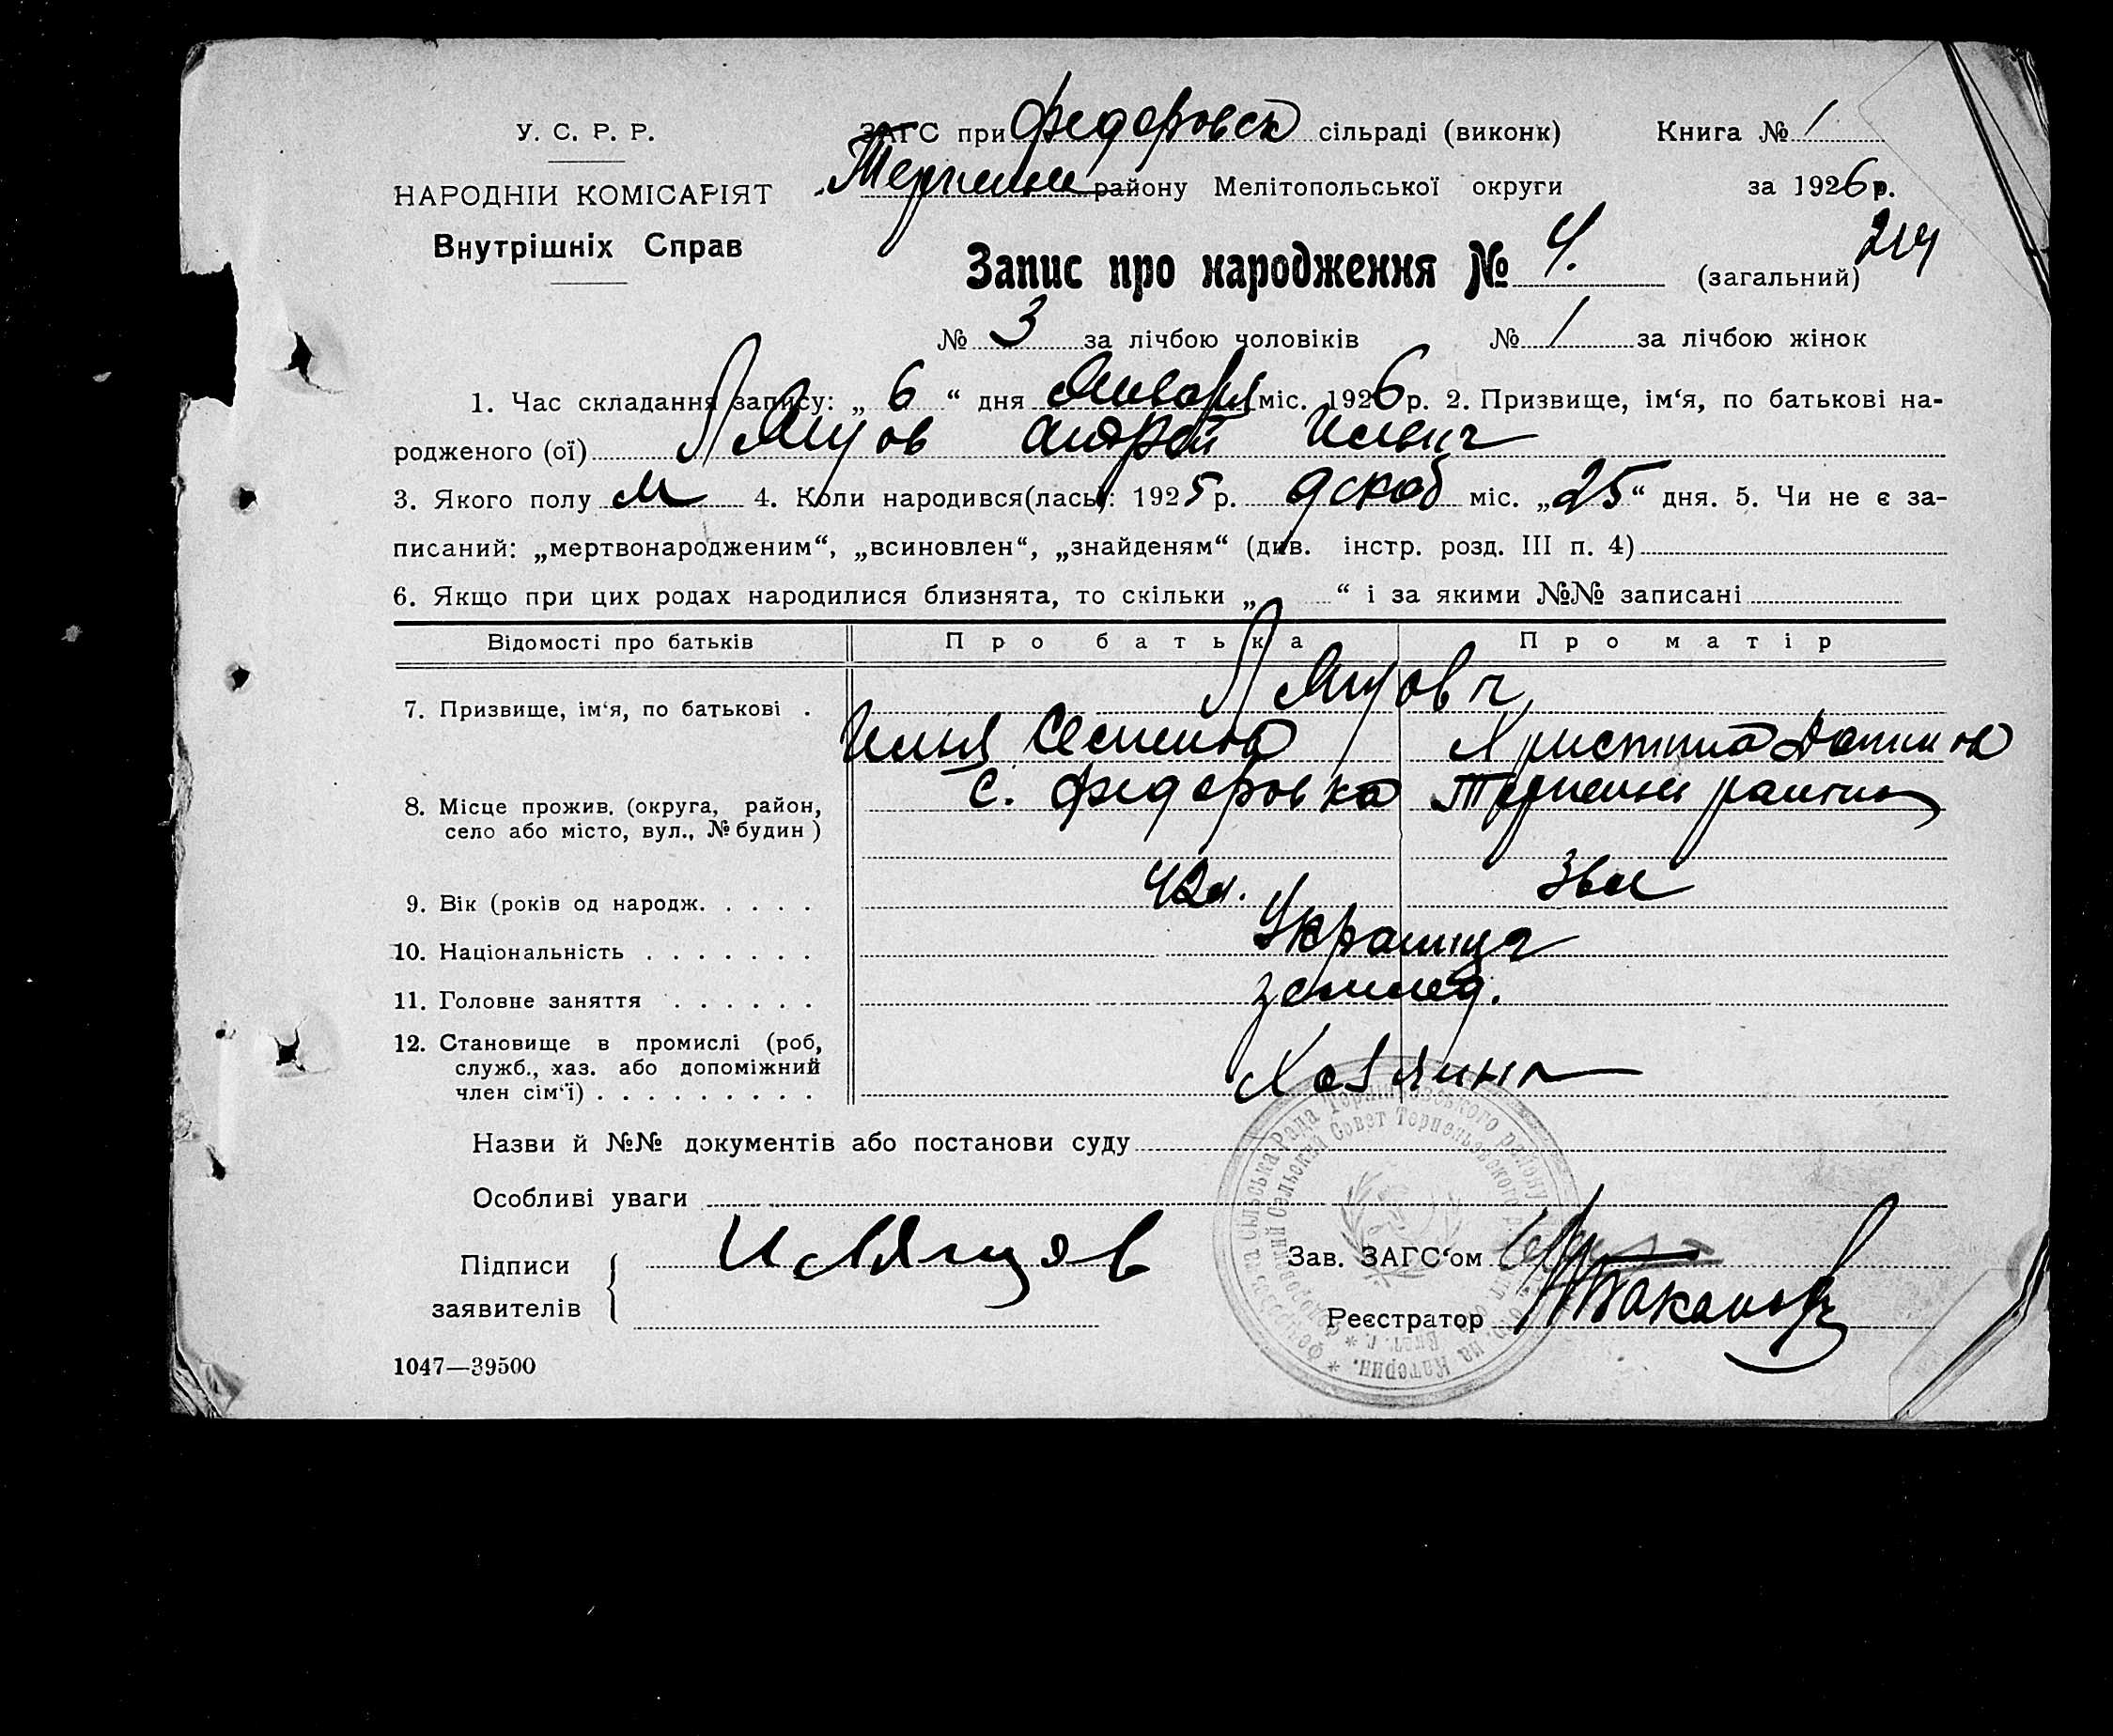 У. С. Р. Р.
НАРОДНІЙ КОМІСАРІЯТ
Внутрішніх Справ
ЗАГС при Федоровск сільраді (виконк) Книга № 1
району Мелітопольської округи за 1926 р.
214
Запис про народження № 4. (загальний)
№ 3 за лічбою чоловіків № 1 за лічбою жінок
1. Час складання запису: „ 6 “ дня Января міс. 1926 р. 2. Призвище, ім‘я, по батькові на-
родженого (ої) Лящов Андрей Ильич
3. Якого полу м 4. Коли народився(лась): 1925 р. декаб міс. „25“ дня. 5. Чи не є за-
писаний: „мертвонародженим“, „всиновлен“, „знайденям“ (див. інстр. розд. III п. 4)
6. Якщо при цих родах народилися близнята, то скільки „ “ і за якими №№ записані
Відомості про батьків Про батька Про матір
7. Призвище, ім‘я, по батькові .
Илья Семенов Христина
8. Місце прожив. (округа, район,
село або місто, вул., № будин )
с. Федоровка
9. Вік (років од народж. . . . . 42л. 36л
10. Національність . . . . . . .
11. Головне заняття . . . . . . землед.
12. Становище в промислі (роб,
служб., хаз. або допоміжний
член сім‘ї) . . . . . . . . .
Назви й №№ документів або постанови суду
Особливі уваги
Підписи
заявителів
И Лящов
Зав. ЗАГС‘ом
Реєстратор
1047—39500